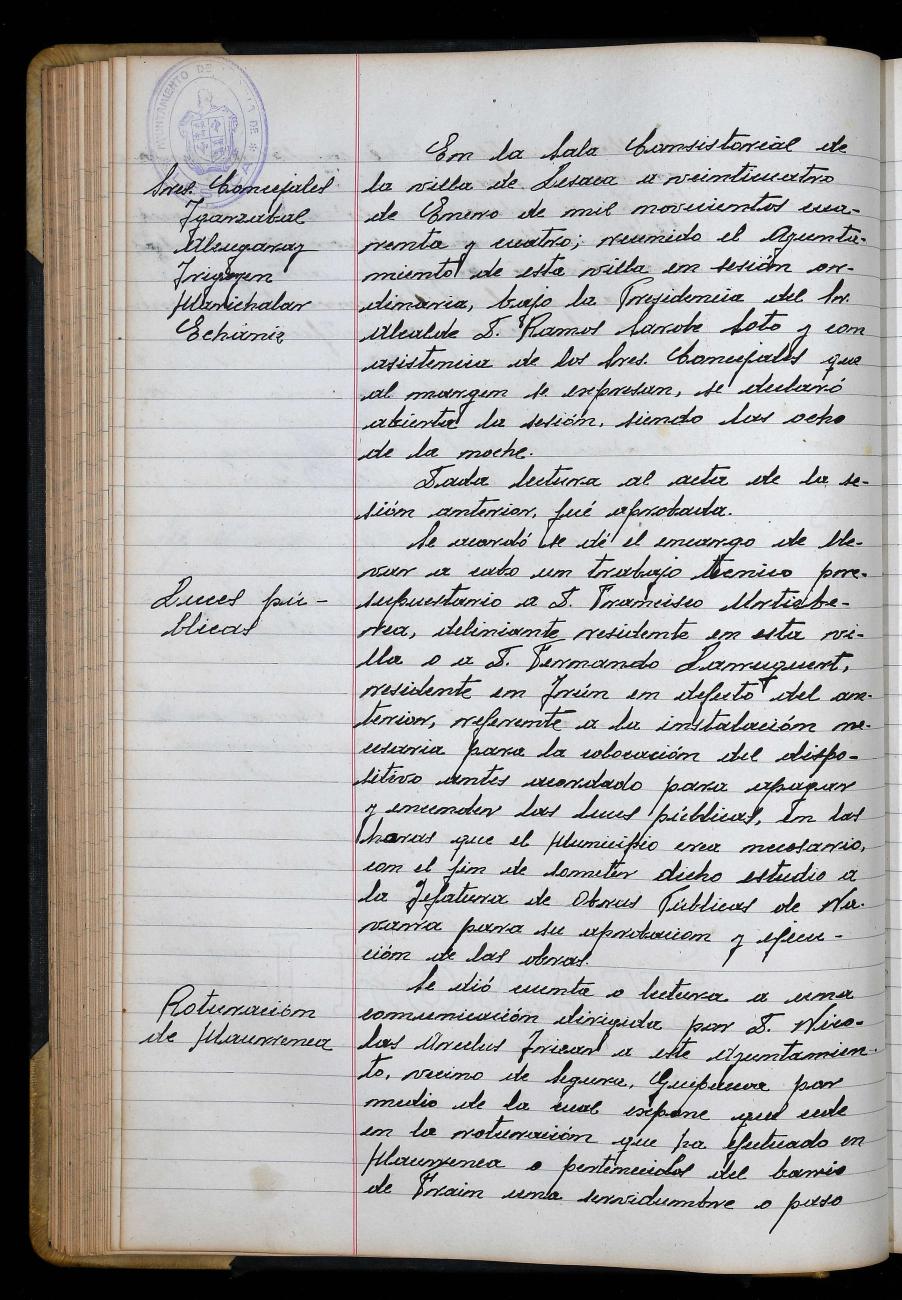 AYUNTAMIENTO DE
Sres. Concejales
Iganzabal
Alzugaray
Irigoyen
Marichalar
Echániz
En la Sala Consistorial de
la villa de Lesaca a veinticuatro
de Enero de mil novecientos cua-
renta y cuatro; reunido el Ayunta-
miento de esta villa en sesión or-
dinaria, bajo la Presidencia del Sr.
Alcalde D. Ramos Sarobe Soto y con
asistencia de los Sres. Concejales que
al margen se expresan, se declaró
abierta la sesión, siendo las ocho
de la noche.
Dada lectura al acta de la se-
sión anterior, fué aprobada.
Luces pú-
blicas
Se acordó se dé el encargo de lle-
var a cabo un trabajo tecnico pre-
supuestario a D. Francisco Ortiabe-
rea, deliniante residente en esta vi-
lla o a D. Fermando
residente en Irún en defecto del an-
terior, referente a la instalación ne-
cesaria para la colocación del dispo-
sitivo antes acordado para apagar
y encender las luces públicas, en las
horas que el Municipio crea necesario,
con el fin de someter dicho estudio a
la Jefatura de Obras Públicas de Na-
varra para su aprobacion y ejecu-
ción de las obras.
Roturación
de Maurrenea
Se dió cuenta o lectura a una
comunicación dirigida por D. Nico-
las Arcelus Irizar a este Ayuntamien-
to, vecino de Segura, Guipuzcoa por
medio de la cual expone que cede
en la roturación que ha efectuado en
Maurrenea o pertenecidos del barrio
de Frain una servidumbre o paso